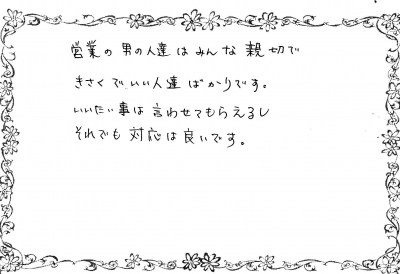 営業の男の人達はみんな親切で
きさくでいい人達ばかりです。
いいたい事は言わせてもらえるし
それでも対応は良いです。